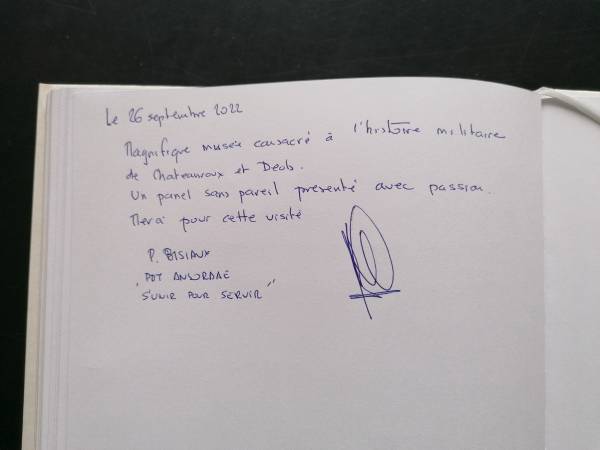 Le 26 septembre 2022
Magnifique musée consacré à l'histoire militaire
de Chateauroux et Deols.
Un panel sans pareil présenté avec passion.
Merci pour cette visite
P. BISIAUX
PDT ANSORAAE
"S'UNIR POUR SERVIR"